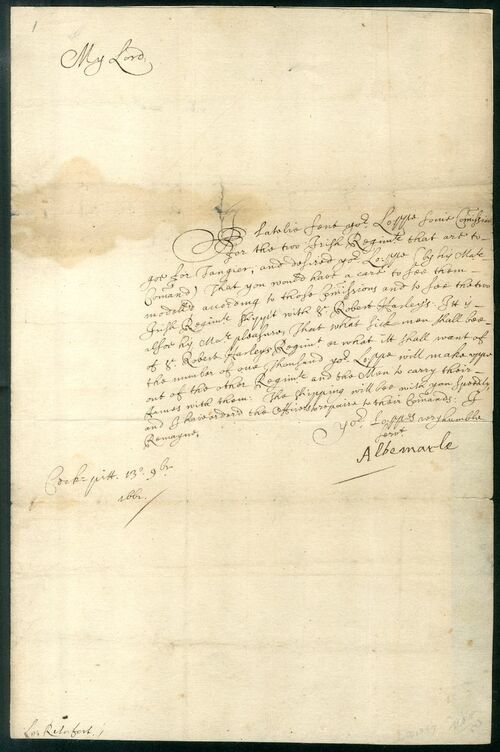 1
My Lord
I Latelie sent yor. Loppe some Comissions
For the two Irish Regimts. that are to
goe for Tangier, and desired yor. Loppe (by his Mats.
Comand) That you would have a care to see them
modelld according to those Comissions and to see the two
Irish Regimts. shippt with Sr. Robert Harley's. It is
alsoe his Mats. pleasure, That what sick men shall bee
of Sr. Robert Harleys Regimt. or what itt shall want of
the number of one thousand yor. Loppe will make uppe
out of the other Regimt. and the Men to carry their
Armes with them. The shipping will bee with you speedily
and I have orderd the Officers to repaire to their Comands. I
Remayne,
yor. Lopps very humble
servt.
Albemarle
Cock-pitt. 13o. 9br.
1661.
Lo. Rutherfort.